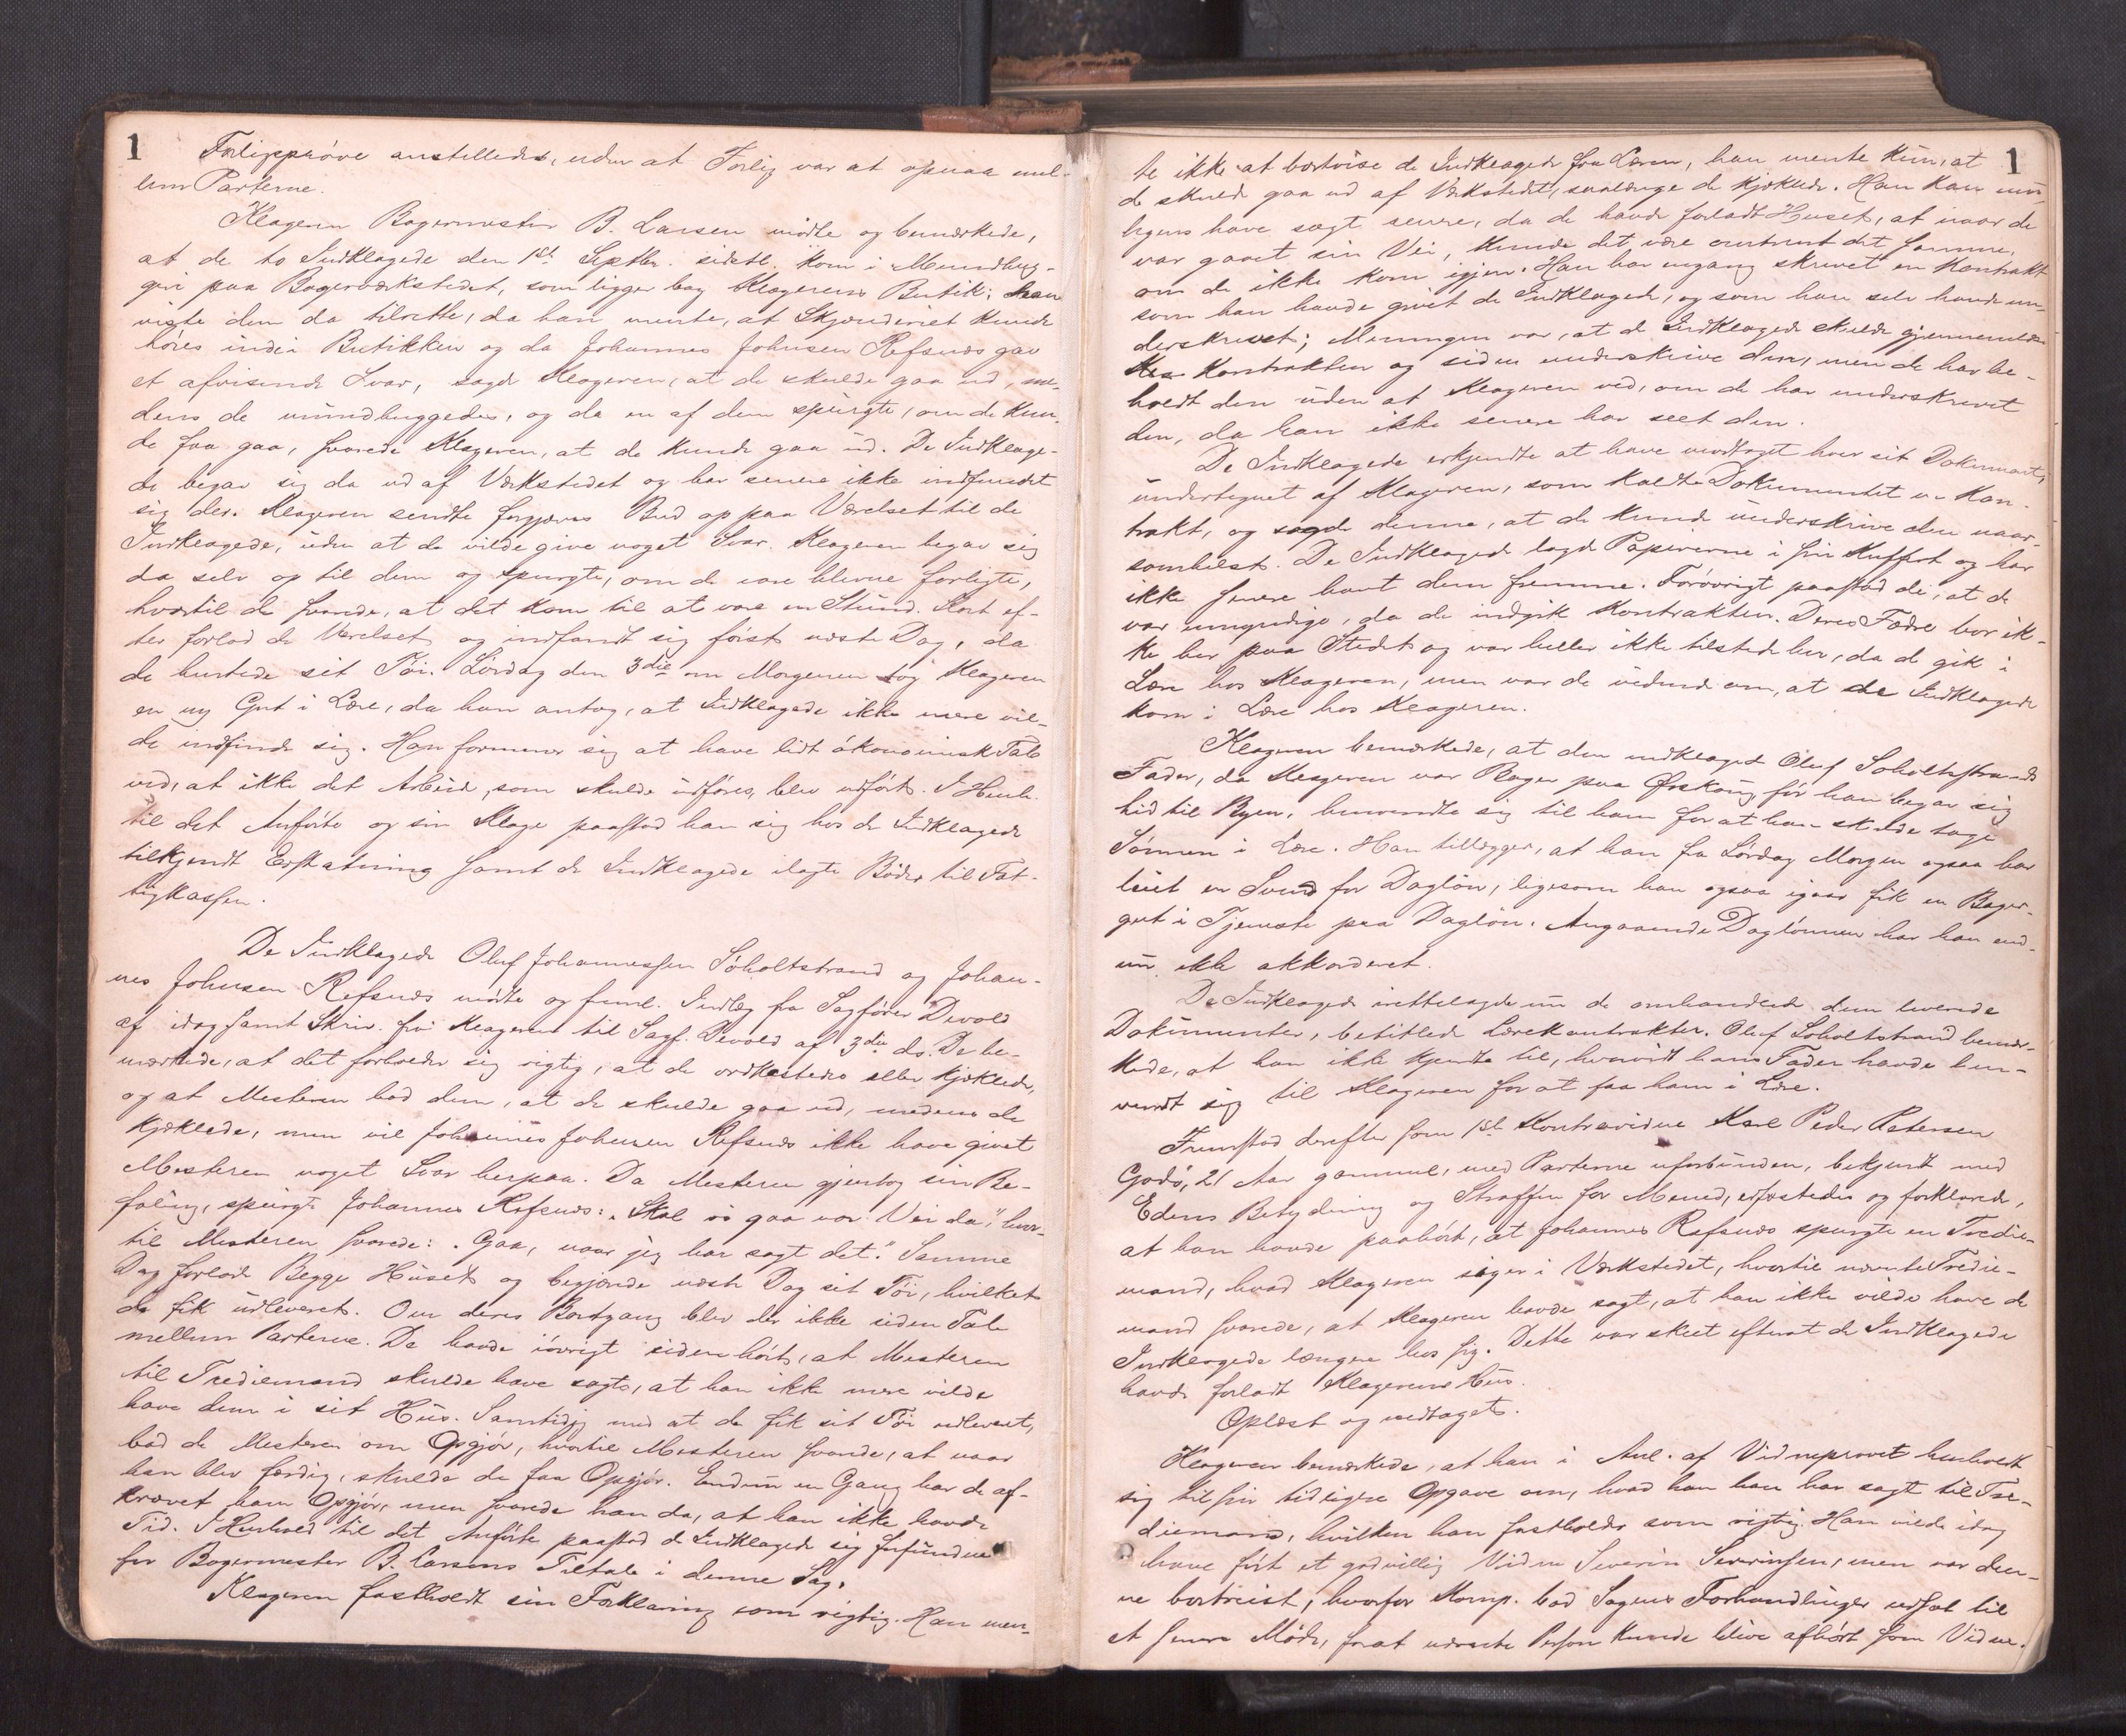 1
Forligsprøve anstilledes, uden at Forlig var at opnaa mel-
lem Parterne.
Klageren Bagermester B. Larsen mødte og bemærkede,
at de to Indklagede den 1ste Septbr. sidstl. kom i Mundhug-
geri paa Bagerværkstedet, som ligger bag Klagerens Butik; han
viste dem da tilrette, da han mente, at Skjænderiet kunde
høres inde i Butikken og da Johannes Johnsen Refsnes gav
et afvisende Svar, sagde Klageren, at de skulde gaa ud, me-
dens de mundhuggedes, og da en af dem spurgte, om de kun-
de faa gaa, svarede Klageren, at de kunde gaa ud. De Indklage-
de begav sig da ud af Værkstedet og har senere ikke indfundet
sig der. Klageren sendte forgjæves Bud op paa Værelset til de
Indklagede, uden at de vilde give noget Svar. Klageren begav sig
da selv op til dem og spurgte, om de vare blevne forligte,
hvortil de svarede, at det kom til at vare en Stund. Kort ef-
ter forlod de Værelset og indfandt sig først næste Dag, da
de hentede sit Tøi. Lørdag den 3die om Morgenen tog Klageren
en ny Gut i Lære, da han antog, at Indklagede ikke mere vil-
de indfinde sig. Han formener sig at have lidt økonomisk Tab
ved, at ikke det Arbeide, som skulde udføres, blev udført. I Henh.
til det Anførte og sin Klage paastod han sig hos de Indklagede
tilkjendt Erstatning samt de Indklagede ilagte Bøder til Fat-
tigkassen.
De Indklagede Oluf Johannessen Søholtstrand og Johan-
nes Johnsen Refsnes mødte og freml. Indlæg fra Sagfører Devold
af idag samt Skriv. fra Klageren til Sagf. Devold af 3die ds. De be-
mærkede, at det forholder sig rigtig, at de ordkastedes eller kjæklede,
og at Mesteren bad dem, at de skulde gaa ud, medens de
kjæklede, men vil Johannes Johnsen Refsnes ikke have givet
Mesteren noget Svar herpaa. Da Mesteren gjentog sin Be-
faling, spurgte Johannes Refsnes: „Skal vi gaa vor Vei da“, hvor-
til Mesteren svarede: „Gaa, naar jeg har sagt det.“ Samme
Dag forlod Begge Huset og begjærede næste Dag sit Tøi, hvilket
de fik udleveret. Om deres Bortgang blev der ikke siden Tale
mellem Parterne. De havde iøvrigt siden hørt, at Mesteren
til Trediemand skulde have sagt, at han ikke mere vilde
have dem i sit Hus. Samtidig med at de fik sit Tøi udleveret,
bad de Mesteren om Opgjør, hvortil Mesteren svarede, at naar
han blev færdig, skulde de faa Opgjør. Endnu en Gang har de af-
krævet ham Opgjør, men svarede han da, at han ikke havde
Tid. I Henhold til det Anførte paastod de Indklagede sig frifundne
for Bagermester B. Larsens Tiltale i denne Sag.
Klageren fastholdt sin Forklaring som rigtig. Han men-
1
te ikke at bortvise de Indklagede fra Læren, han mente kun, at
de skulde gaa ud af Værkstedet, saalænge de kjæklede. Han kan mu-
ligens have sagt senere, da de havde forladt Huset, at naar de
var gaaet sin Vei, kunde det være omtrent det samme,
om de ikke kom igjen. Han har engang skrevet en Kontrakt
som han havde givet de Indklagede, og som han selv havde un-
derskrevet; Meningen var, at de Indklagede skulde gjennemlæse
Kontrakten og siden underskrive den, men de har be-
holdt den uden at Klageren ved, om de har underskrevet
den, da han ikke senere har seet den.
De Indklagede erkjendte at have modtaget hver sit Dokument,
undertegnet af Klageren, som kaldte Dokumentet en Kon-
trakt, og sagde denne, at de kunde underskrive den naar-
somhelst. De Indklagede lagde Papirerne i sin Kuffert og har
ikke senere havt dem fremme. Forøvrigt paastod de, at de
var umyndige, da de indgik Kontrakten. Deres Fædre bor ik-
ke her paa Stedet og var heller ikke tilstede her, da de gik i
Lære hos Klageren, men var de vidende om, at de Indklagede
kom i Lære hos Klageren.
Klageren bemærkede, at den indklagede Oluf Søholtstrands
Fader, da Klageren var Bager paa Ørskoug før han begav sig
hid til Byen, henvendte sig til ham for at han skulde tage
Sønnen i Lære. Han tillægger, at han fra Lørdag Morgen ogsaa har
leiet en Svend for Dagløn, ligesom han ogsaa igaar fik en Bager-
gut i Tjeneste paa Dagløn. Angaaende Daglønnen har han end-
nu ikke akkorderet.
De Indklagede irettelagde nu de omhandlede dem leverede
Dokumenter, betitlede Lærekontrakter. Oluf Søholtstrand bemær-
kede, at han ikke kjendte til, hvorvidt hans Fader havde hen-
vendt sig til Klageren for at faa ham i Lære.
Fremstod derefter som 1ste Kontravidne Karl Peder Petersen
Godø, 21 Aar gammel, med Parterne uforbunden, bekjendt med
Edens Betydning og Straffen for Mened, edfæstedes og forklarede,
at han havde paahørt, at Johannes Refsnes spurgte en Tredie-
mand, hvad Klageren siger i Værkstedet, hvortil nævnte Tredie-
mand svarede, at Klageren havde sagt, at han ikke vilde have de
Indklagede længere hos sig. Dette var skeet efterat de Indklagede
havde forladt Klagerens Hus.
Oplæst og vedtaget.
Klageren bemærkede, at han i Anl. af Vidneprovet henholdt
sig til sin tidligere Opgave om, hvad han har sagt til Tre-
diemand, hvilken han fastholdt som rigtig. Han vilde idag
have ført et godvillig Vidne Severin Severinsen, men var den-
ne bortreist, hvorfor Komp. bad Sagens Forhandlinger udsat til
et senere Møde, forat nævnte Person kunde blive afhørt som Vidne.